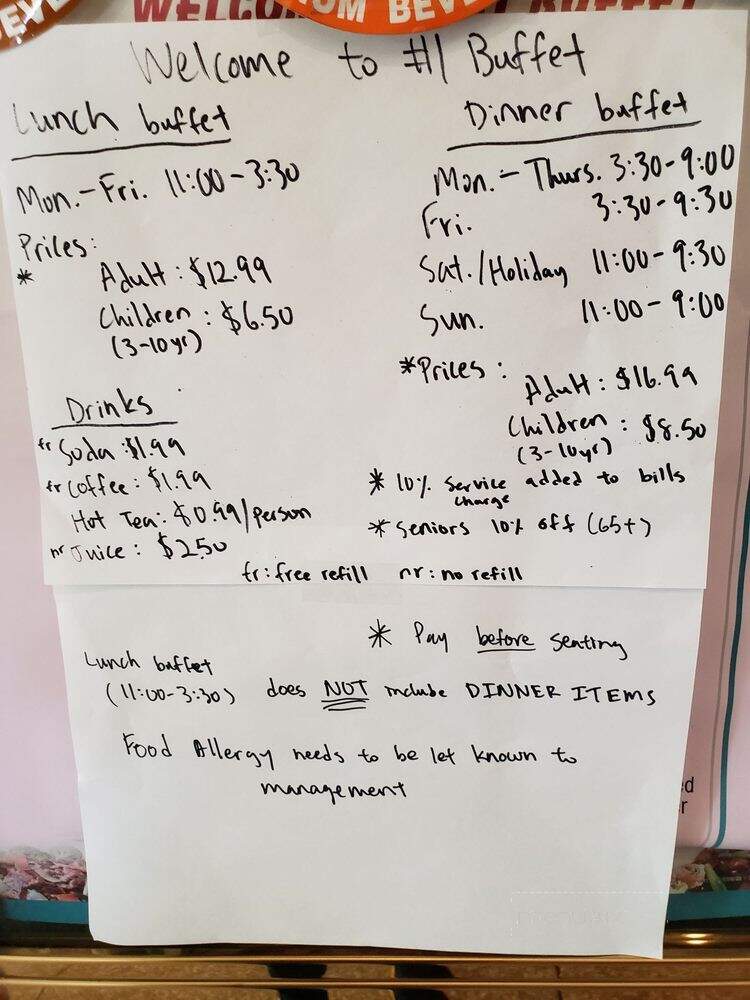 WELCOME
BUFFET
Welcome to #1 Buffet
Lunch buffet
Mon.-Fri. 11:00-3:30
Prices:
* Adult: $12.99
Children: $6.50
(3-10yr)
Drinks
fr Soda: $1.99
fr Coffee: $1.99
Hot Tea: $0.99/person
nr Juice: $2.50
Dinner buffet
Mon.-Thurs. 3:30-9:00
Fri. 3:30-9:30
Sat./Holiday 11:00-9:30
Sun. 11:00-9:00
*Prices:
Adult: $16.99
Children: $8.50
(3-10yr)
* 10% service charge added to bills
* Seniors 10% off (65+)
fr: free refill nr: no refill
* Pay before seating
Lunch buffet
(11:00-3:30) does NOT include DINNER ITEMS
Food Allergy needs to be let known to
management